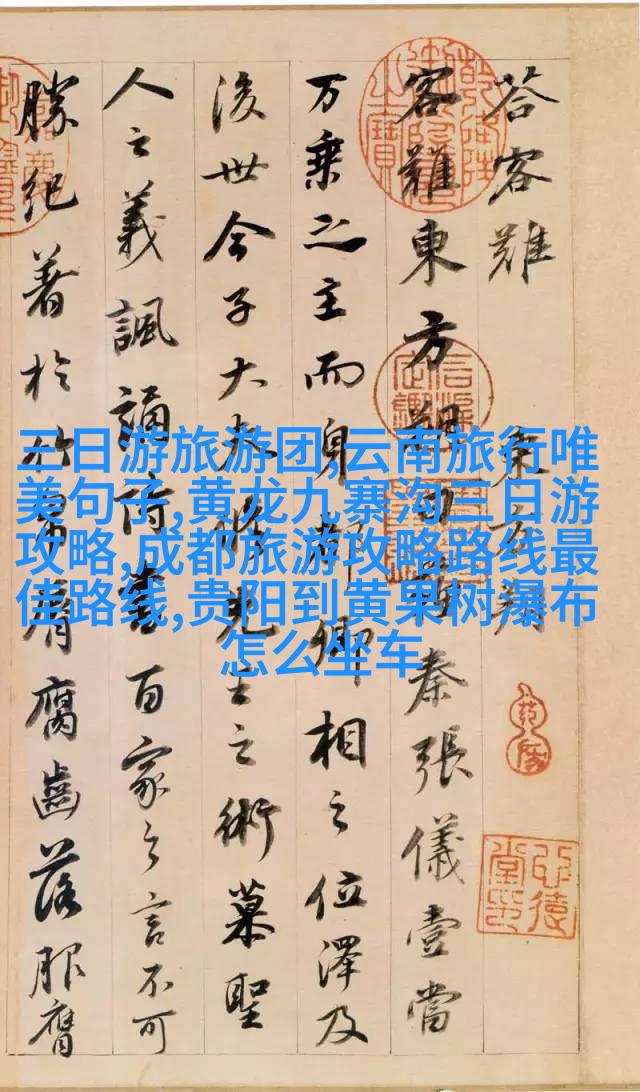 荅客難 東方朔
客難東方朔曰蘇秦張儀壹當
万乗之主而身都卿相之位澤及
後世今子大夫脩先王之術慕聖
人之義諷誦詩書百家之言不可
勝紀著於竹帛脣腐齒落服膺
三日游旅游团,云南旅行唯
美句子,黄龙九寨沟三日游
攻略,成都旅游攻略路线最
佳路线,贵阳到黄果树瀑布
怎么坐车